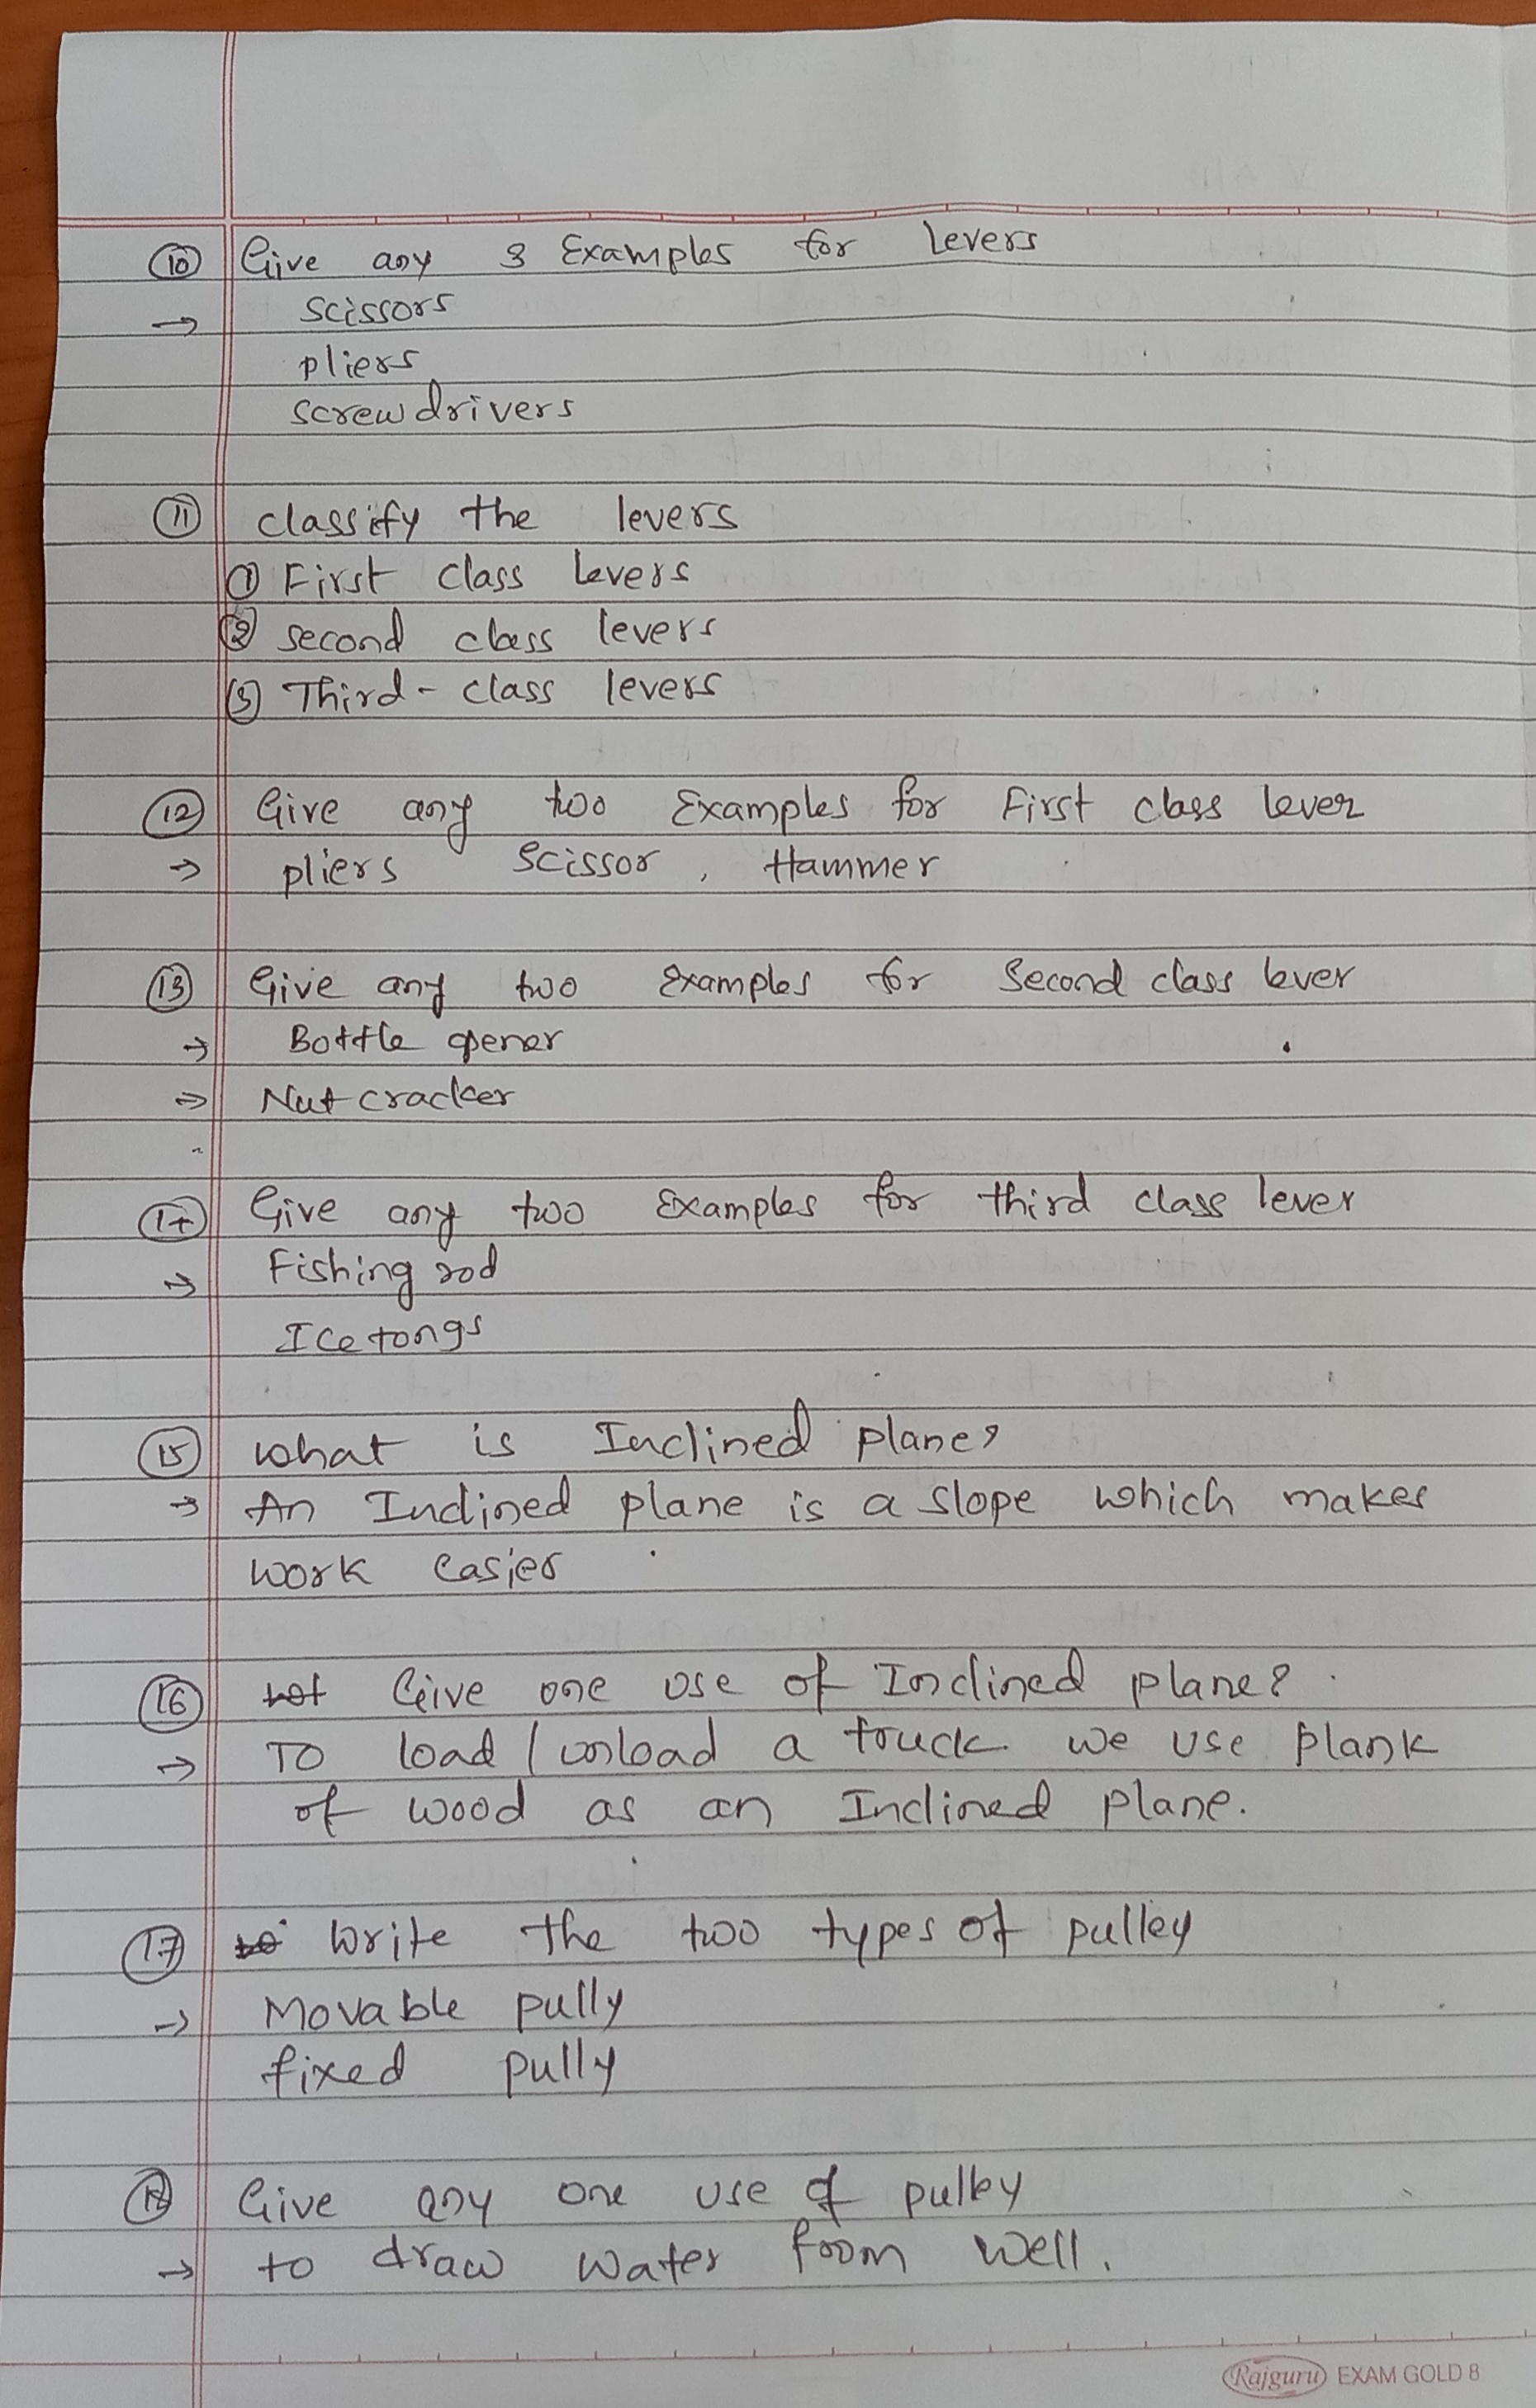 10 Give any 3 Examples for levers
→ scissors
pliers
screwdrivers
11 classify the levers
1 First class levers
2 second class levers
3 Third-class levers
12 Give any two Examples for First class lever
→ pliers scissor, Hammer
13 Give any two Examples for Second class lever
→ Bottle opener
→ Nut cracker
14 Give any two Examples for third class lever
→ Fishing rod
Ice tongs
15 what is Inclined plane?
→ An Inclined plane is a slope which makes
work easier
16 Give one use of Inclined plane?
→ To load / unload a truck we use plank
of wood as an Inclined plane.
17 Write the two types of pulley
→ Movable pully
fixed pully
18 Give any one use of pulley
→ to draw water from well.
Rajguru EXAM GOLD 8